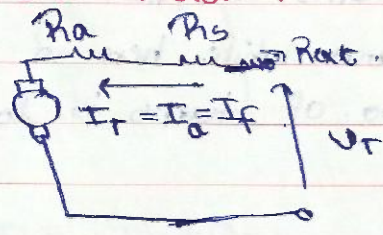 Ra Rs → Rext.
I_T = I_a = I_f
V_T